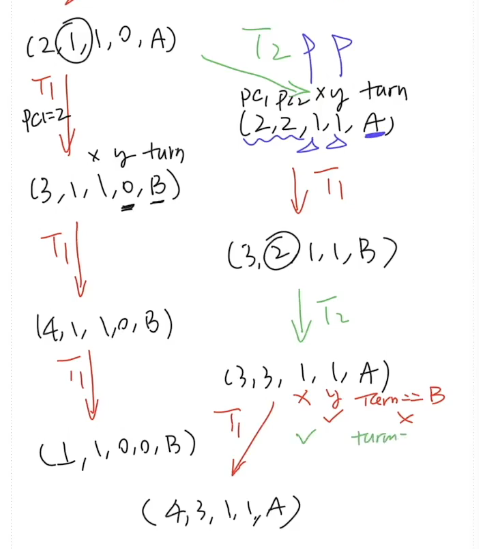 (2, 1, 1, 0, A)
T1
PC1=2
x y turn
(3, 1, 1, 0, B)
T1
(4, 1, 1, 0, B)
T1
(1, 1, 0, 0, B)
T2 P P
PC1 PC2 x y turn
(2, 2, 1, 1, A)
T1
(3, 2 1, 1, B)
T2
(3, 3, 1, 1, A)
x y Turn == B
✓ x
✓ turn=
T1
(4, 3, 1, 1, A)